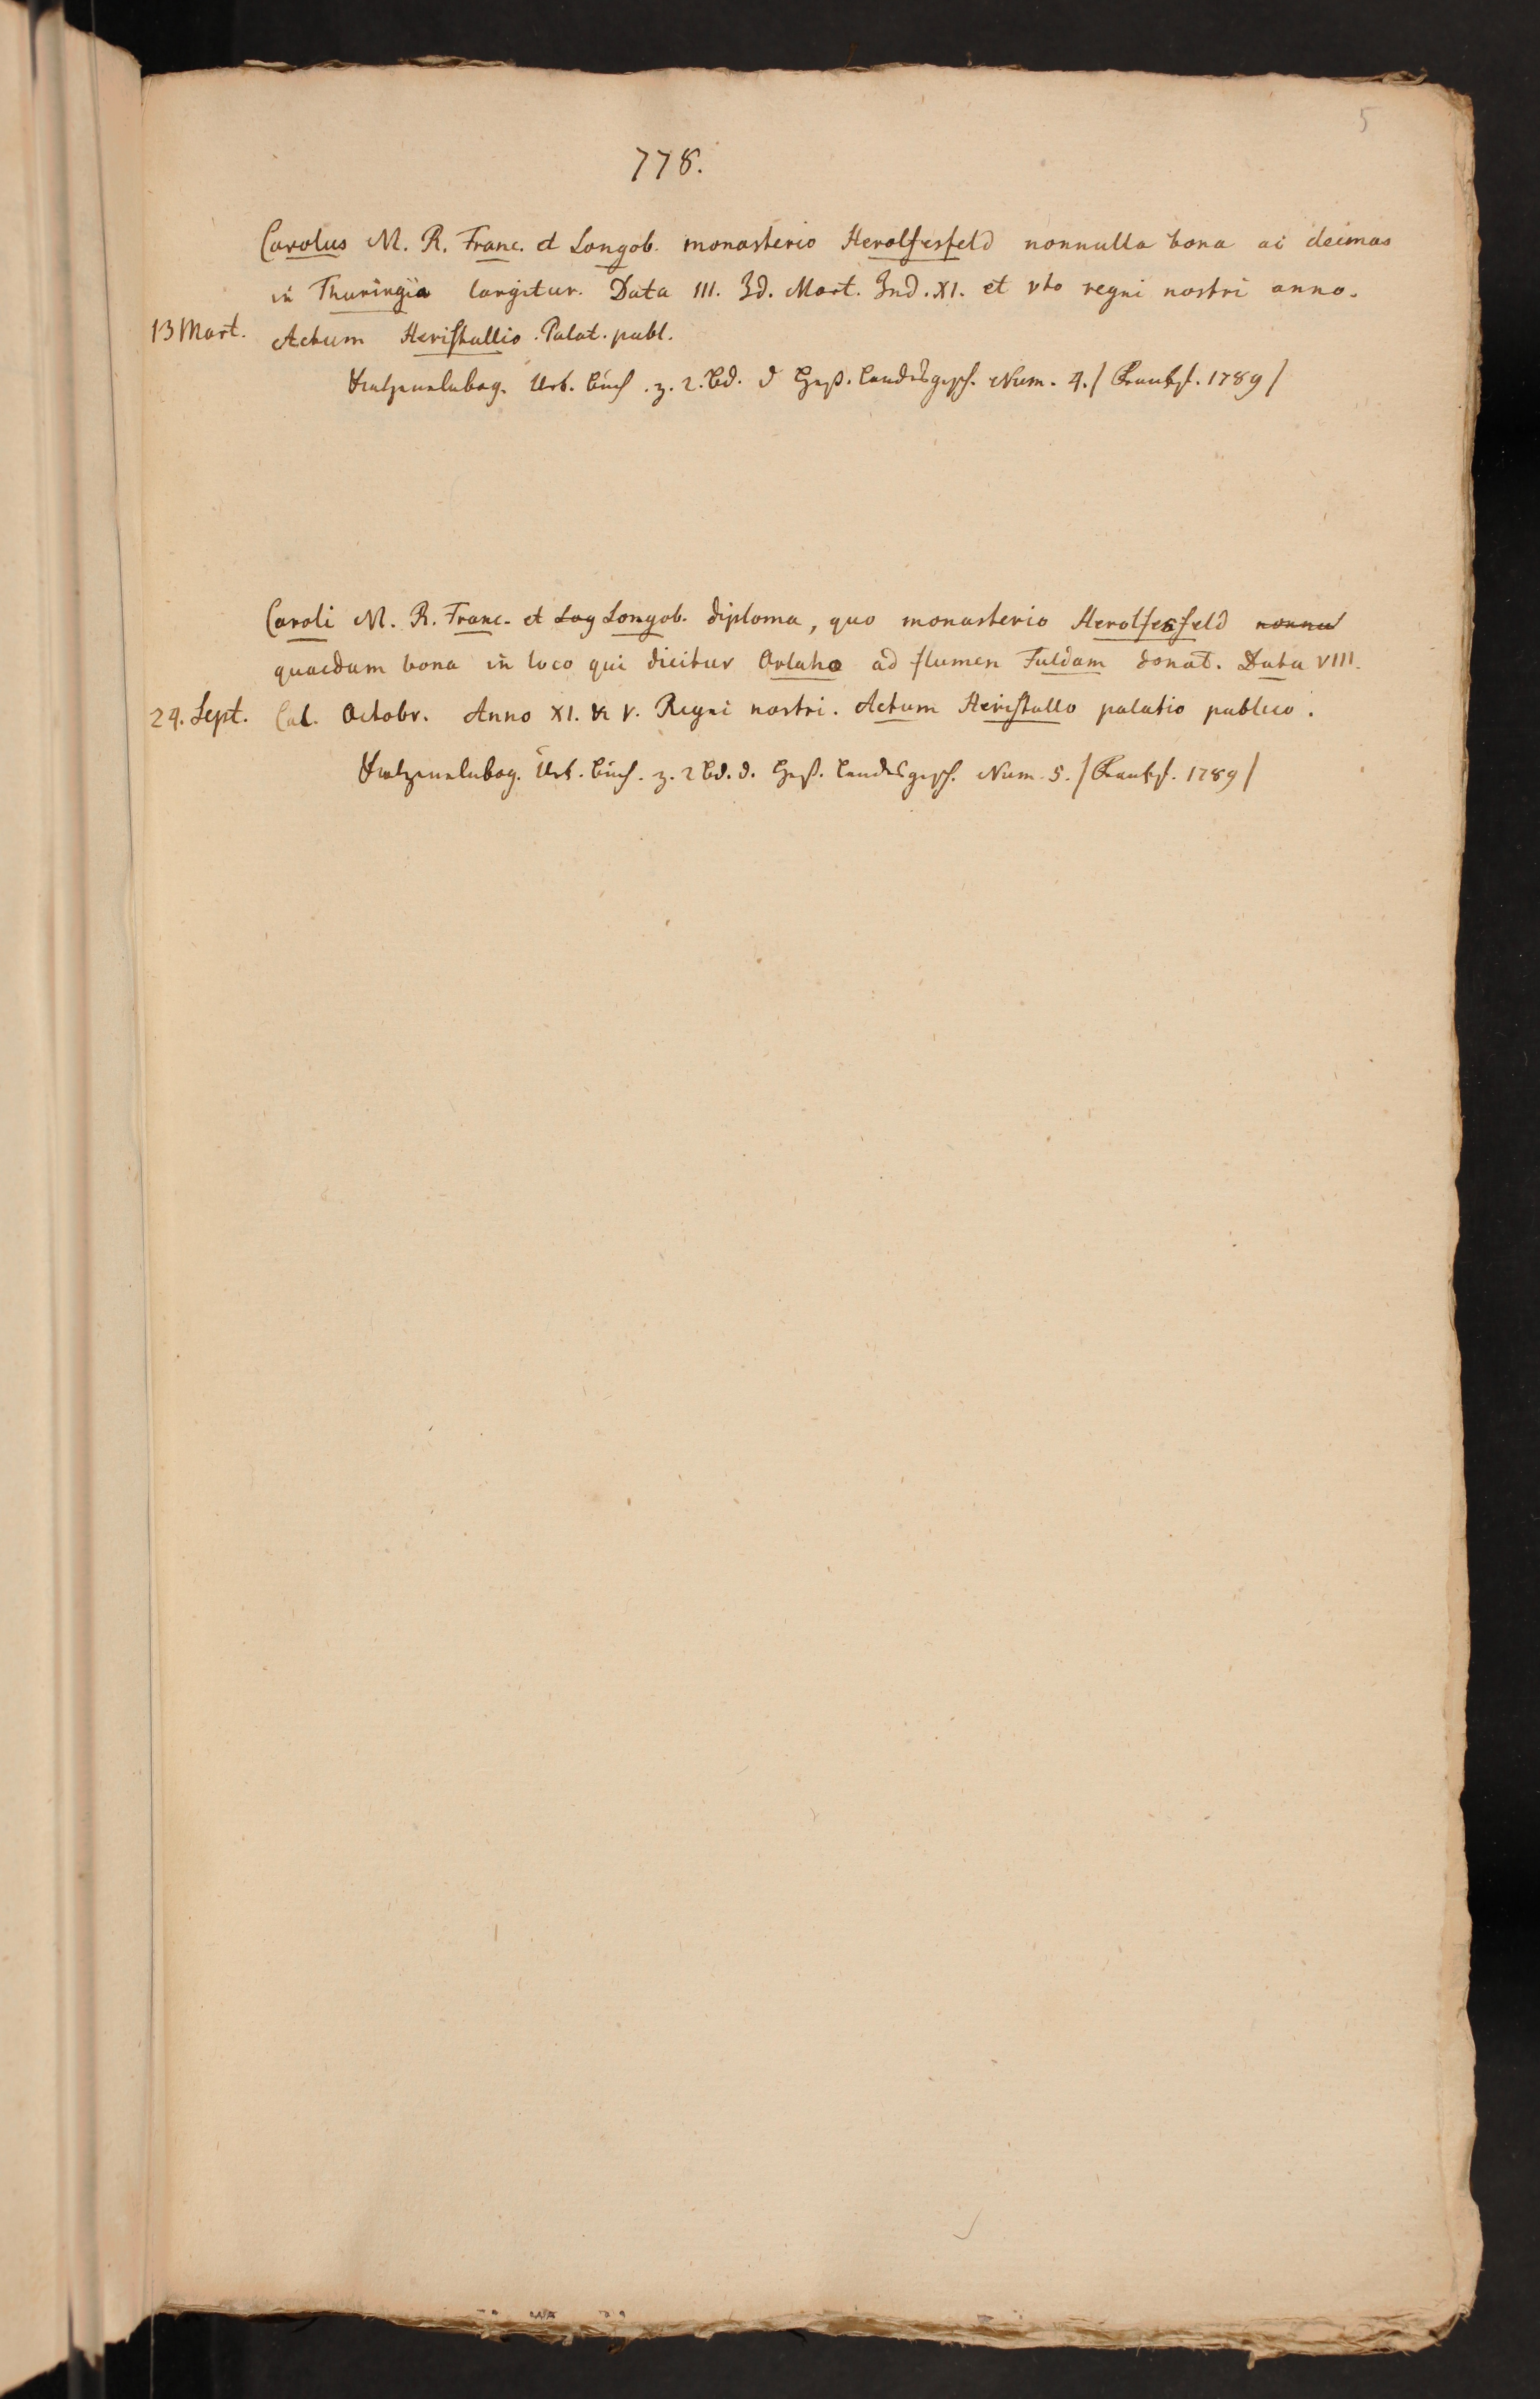 5
778.
Carolus M. R. Franc. et Longob. monasterio Herolfesfeld nonnulla bona ac decimas
in Thuringia largitur. Data III. Id. Mart. Ind. XI. et Vto regni nostri anno.
13 Mart. Actum Heristallio. Palat. publ.
Urk. Buch. z. 2. Bd. d Heß. Landesgesch. Num. 4. / Frankf. 1789 /
Caroli M. R. Franc. et Log Longob. diploma, quo monasterio Herolfesfeld nonnul
quaedam bona in loco qui dicitur Orlaho ad flumen Fuldam donat. Data VIII.
24. Sept. Cal. Octobr. Anno XI. et V. Regni nostri. Actum Heristallo palatio publico.
Urk. Buch. z. 2 Bd. d. Heß. Landesgesch. Num. 5. / Frankf. 1789 /